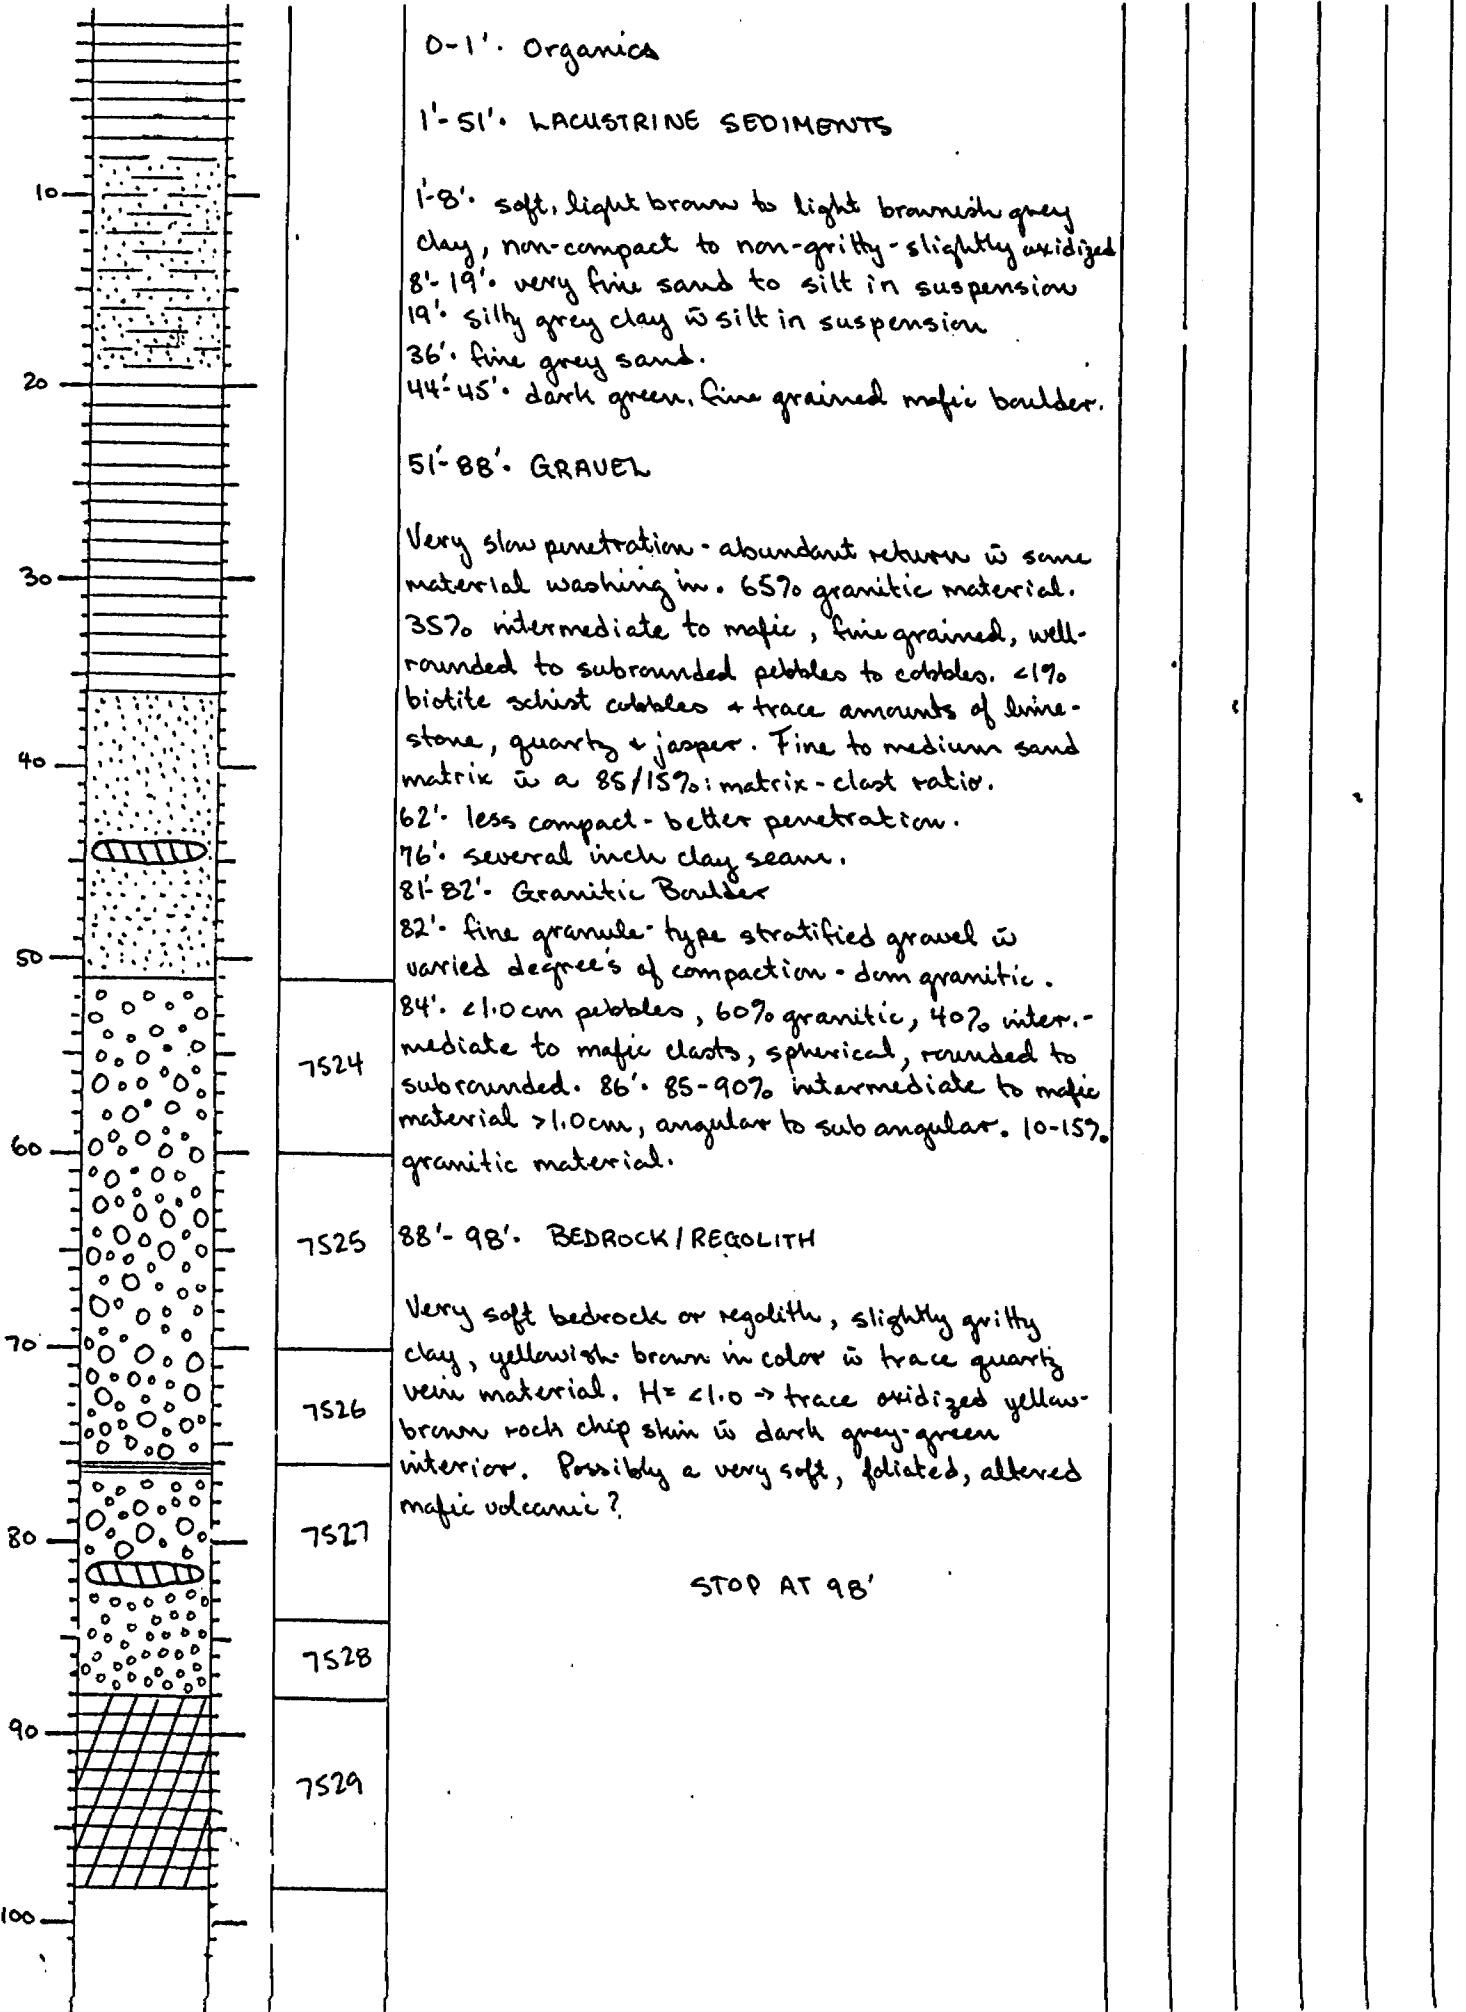 0-1'. Organics
1'-51'. LACUSTRINE SEDIMENTS
1'-8'. soft, light brown to light brownish grey
clay, non-compact to non-gritty - slightly oxidized
8'-19'. very fine sand to silt in suspension
19'. silty grey clay w̄ silt in suspension
36'. fine grey sand.
44'-45'. dark green, fine grained mafic boulder.
51'-88'. GRAVEL
Very slow penetration - abundant return w̄ some
material washing in. 65% granitic material.
35% intermediate to mafic, fine grained, well-
rounded to subrounded pebbles to cobbles. <1%
biotite schist cobbles + trace amounts of lime-
stone, quartz + jasper. Fine to medium sand
matrix w̄ a 85/15%: matrix-clast ratio.
62'. less compact - better penetration.
76'. several inch clay seam.
81'-82'. Granitic Boulder
82'. fine granule-type stratified gravel w̄
varied degree's of compaction - dom granitic.
84'. <1.0cm pebbles, 60% granitic, 40% inter.-
mediate to mafic clasts, spherical, rounded to
subrounded. 86'. 85-90% intermediate to mafic
material >1.0cm, angular to sub angular. 10-15%.
granitic material.
88'-98'. BEDROCK/REGOLITH
Very soft bedrock or regolith, slightly gritty
clay, yellowish-brown in color w̄ trace quartz
vein material. H= <1.0 -> trace oxidized yellow-
brown rock chip skin w̄ dark grey-green
interior. Possibly a very soft, foliated, altered
mafic volcanic?
STOP AT 98'
10
20
30
40
50
60
70
80
90
100
7524
7525
7526
7527
7528
7529